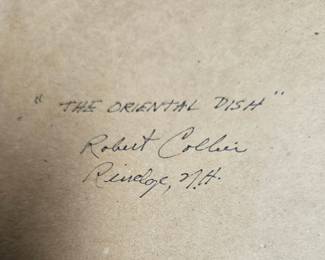 "THE ORIENTAL DISH"
Robert Collier
Rindge, N.H.